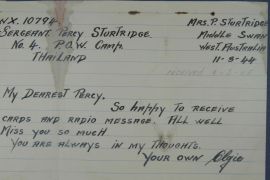 WX. 10794
SERGEANT PERCY STURTRIDGE
No. 4. P.O.W. CAMP.
THAILAND
MRS. P. STURTRIDGE
MIDDLE SWAN
WEST. AUSTRALIA
11-9-44
RECEIVED
MY DEAREST PERCY.
SO HAPPY TO RECEIVE
CARDS AND RADIO MESSAGE. ALL WELL
MISS YOU SO MUCH
YOU ARE ALWAYS IN MY THOUGHTS.
YOUR OWN Elgie